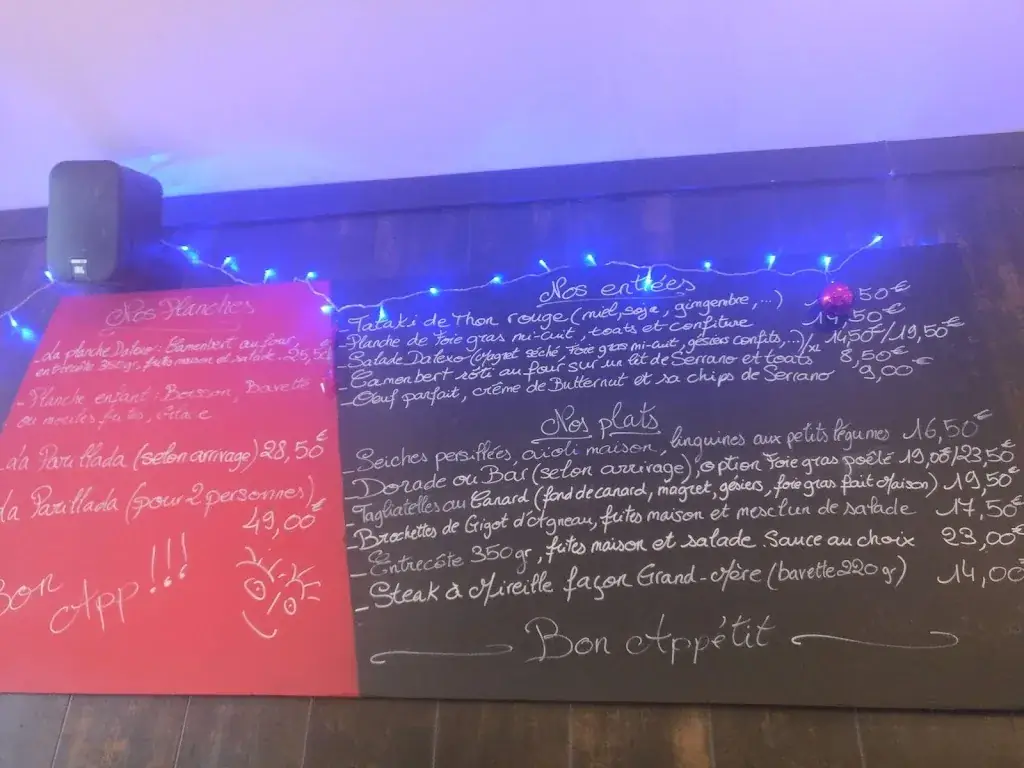 Nos Planches
- La planche Datexo : Camembert au four,
entrecôte 350 gr, frites maison et salade - 25,50€
- Planche enfant : Boisson, Bavette
ou moules frites, Glace
La Parillada (selon arrivage) 28,50€
La Parillada (pour 2 personnes)
49,00€
Bon
App !!!
Nos entrées
- Tataki de Thon rouge (miel, soja, gingembre, ...) 50€
- Planche de Foie gras mi-cuit, toats et confiture 17,50€
- Salade Datexo (Magret séché, Foie gras mi-cuit, gésiers confits, ...) XL 14,50€/19,50€
- Camembert rôti au four sur un lit de Serrano et toats 8,50€
- Oeuf parfait, crème de Butternut et sa chips de Serrano 9,00€
Nos plats
- Seiches persillées, aïoli maison, linguines aux petits légumes 16,50€
- Dorade ou Bar (selon arrivage), option Foie gras poêlé 19,00€/23,50€
- Tagliatelles au Canard (fond de canard, magret, gésiers, foie gras fait Maison) 19,50€
- Brochettes de Gigot d'Agneau, frites maison et mesclun de salade 17,50€
- Entrecôte 350 gr, frites maison et salade. Sauce au choix 23,00€
- Steak à Mireille façon Grand-Mère (bavette 220 gr) 14,00€
Bon Appétit